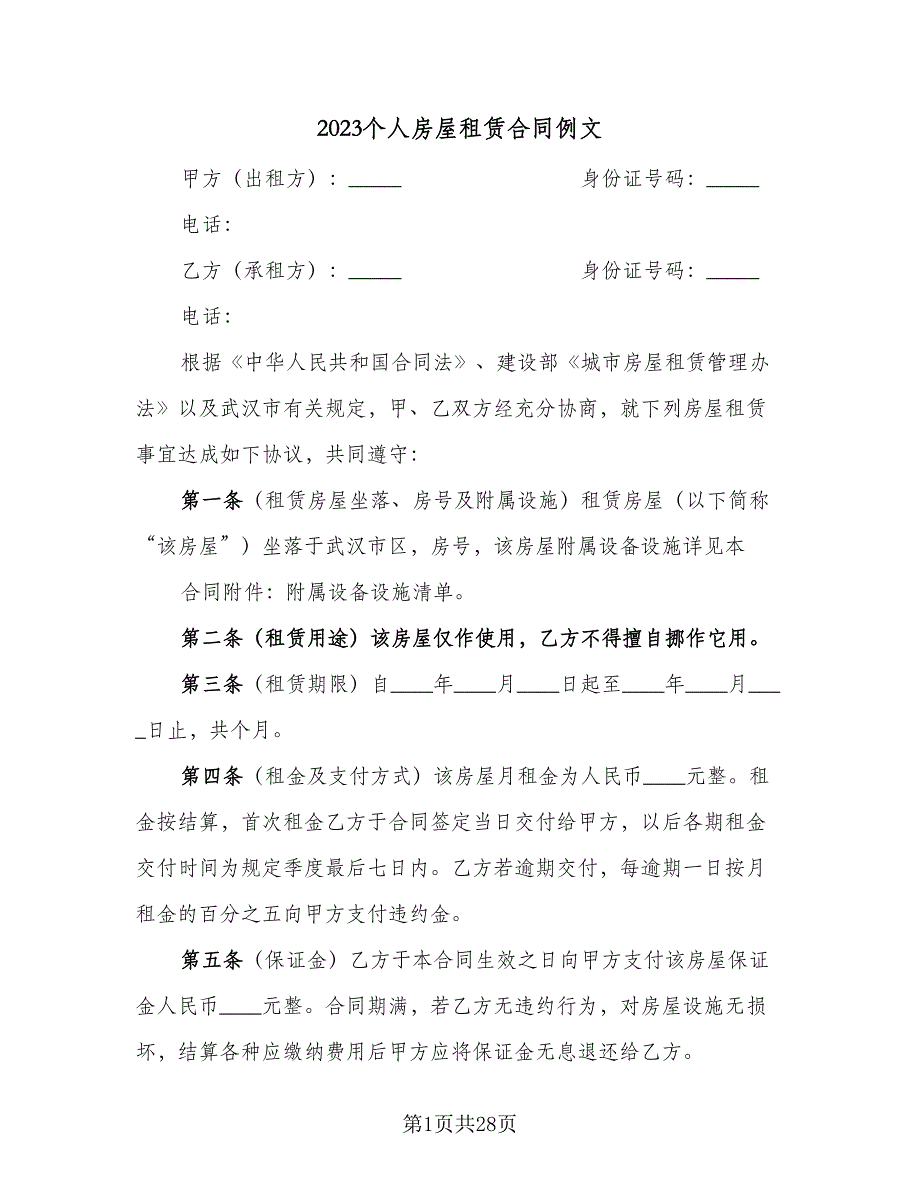 2023个人房屋租赁合同例文
甲方（出租方）：_____ 身份证号码：_____
电话：
乙方（承租方）：_____ 身份证号码：_____
电话：
根据《中华人民共和国合同法》、建设部《城市房屋租赁管理办
法》以及武汉市有关规定，甲、乙双方经充分协商，就下列房屋租赁
事宜达成如下协议，共同遵守：
第一条（租赁房屋坐落、房号及附属设施）租赁房屋（以下简称
“该房屋”）坐落于武汉市区，房号，该房屋附属设备设施详见本
合同附件：附属设备设施清单。
第二条（租赁用途）该房屋仅作使用，乙方不得擅自挪作它用。
第三条（租赁期限）自____年____月____日起至____年____月___
_日止，共个月。
第四条（租金及支付方式）该房屋月租金为人民币____元整。租
金按结算，首次租金乙方于合同签定当日交付给甲方，以后各期租金
交付时间为规定季度最后七日内。乙方若逾期交付，每逾期一日按月
租金的百分之五向甲方支付违约金。
第五条（保证金）乙方于本合同生效之日向甲方支付该房屋保证
金人民币____元整。合同期满，若乙方无违约行为，对房屋设施无损
坏，结算各种应缴纳费用后甲方应将保证金无息退还给乙方。
第1页共28页